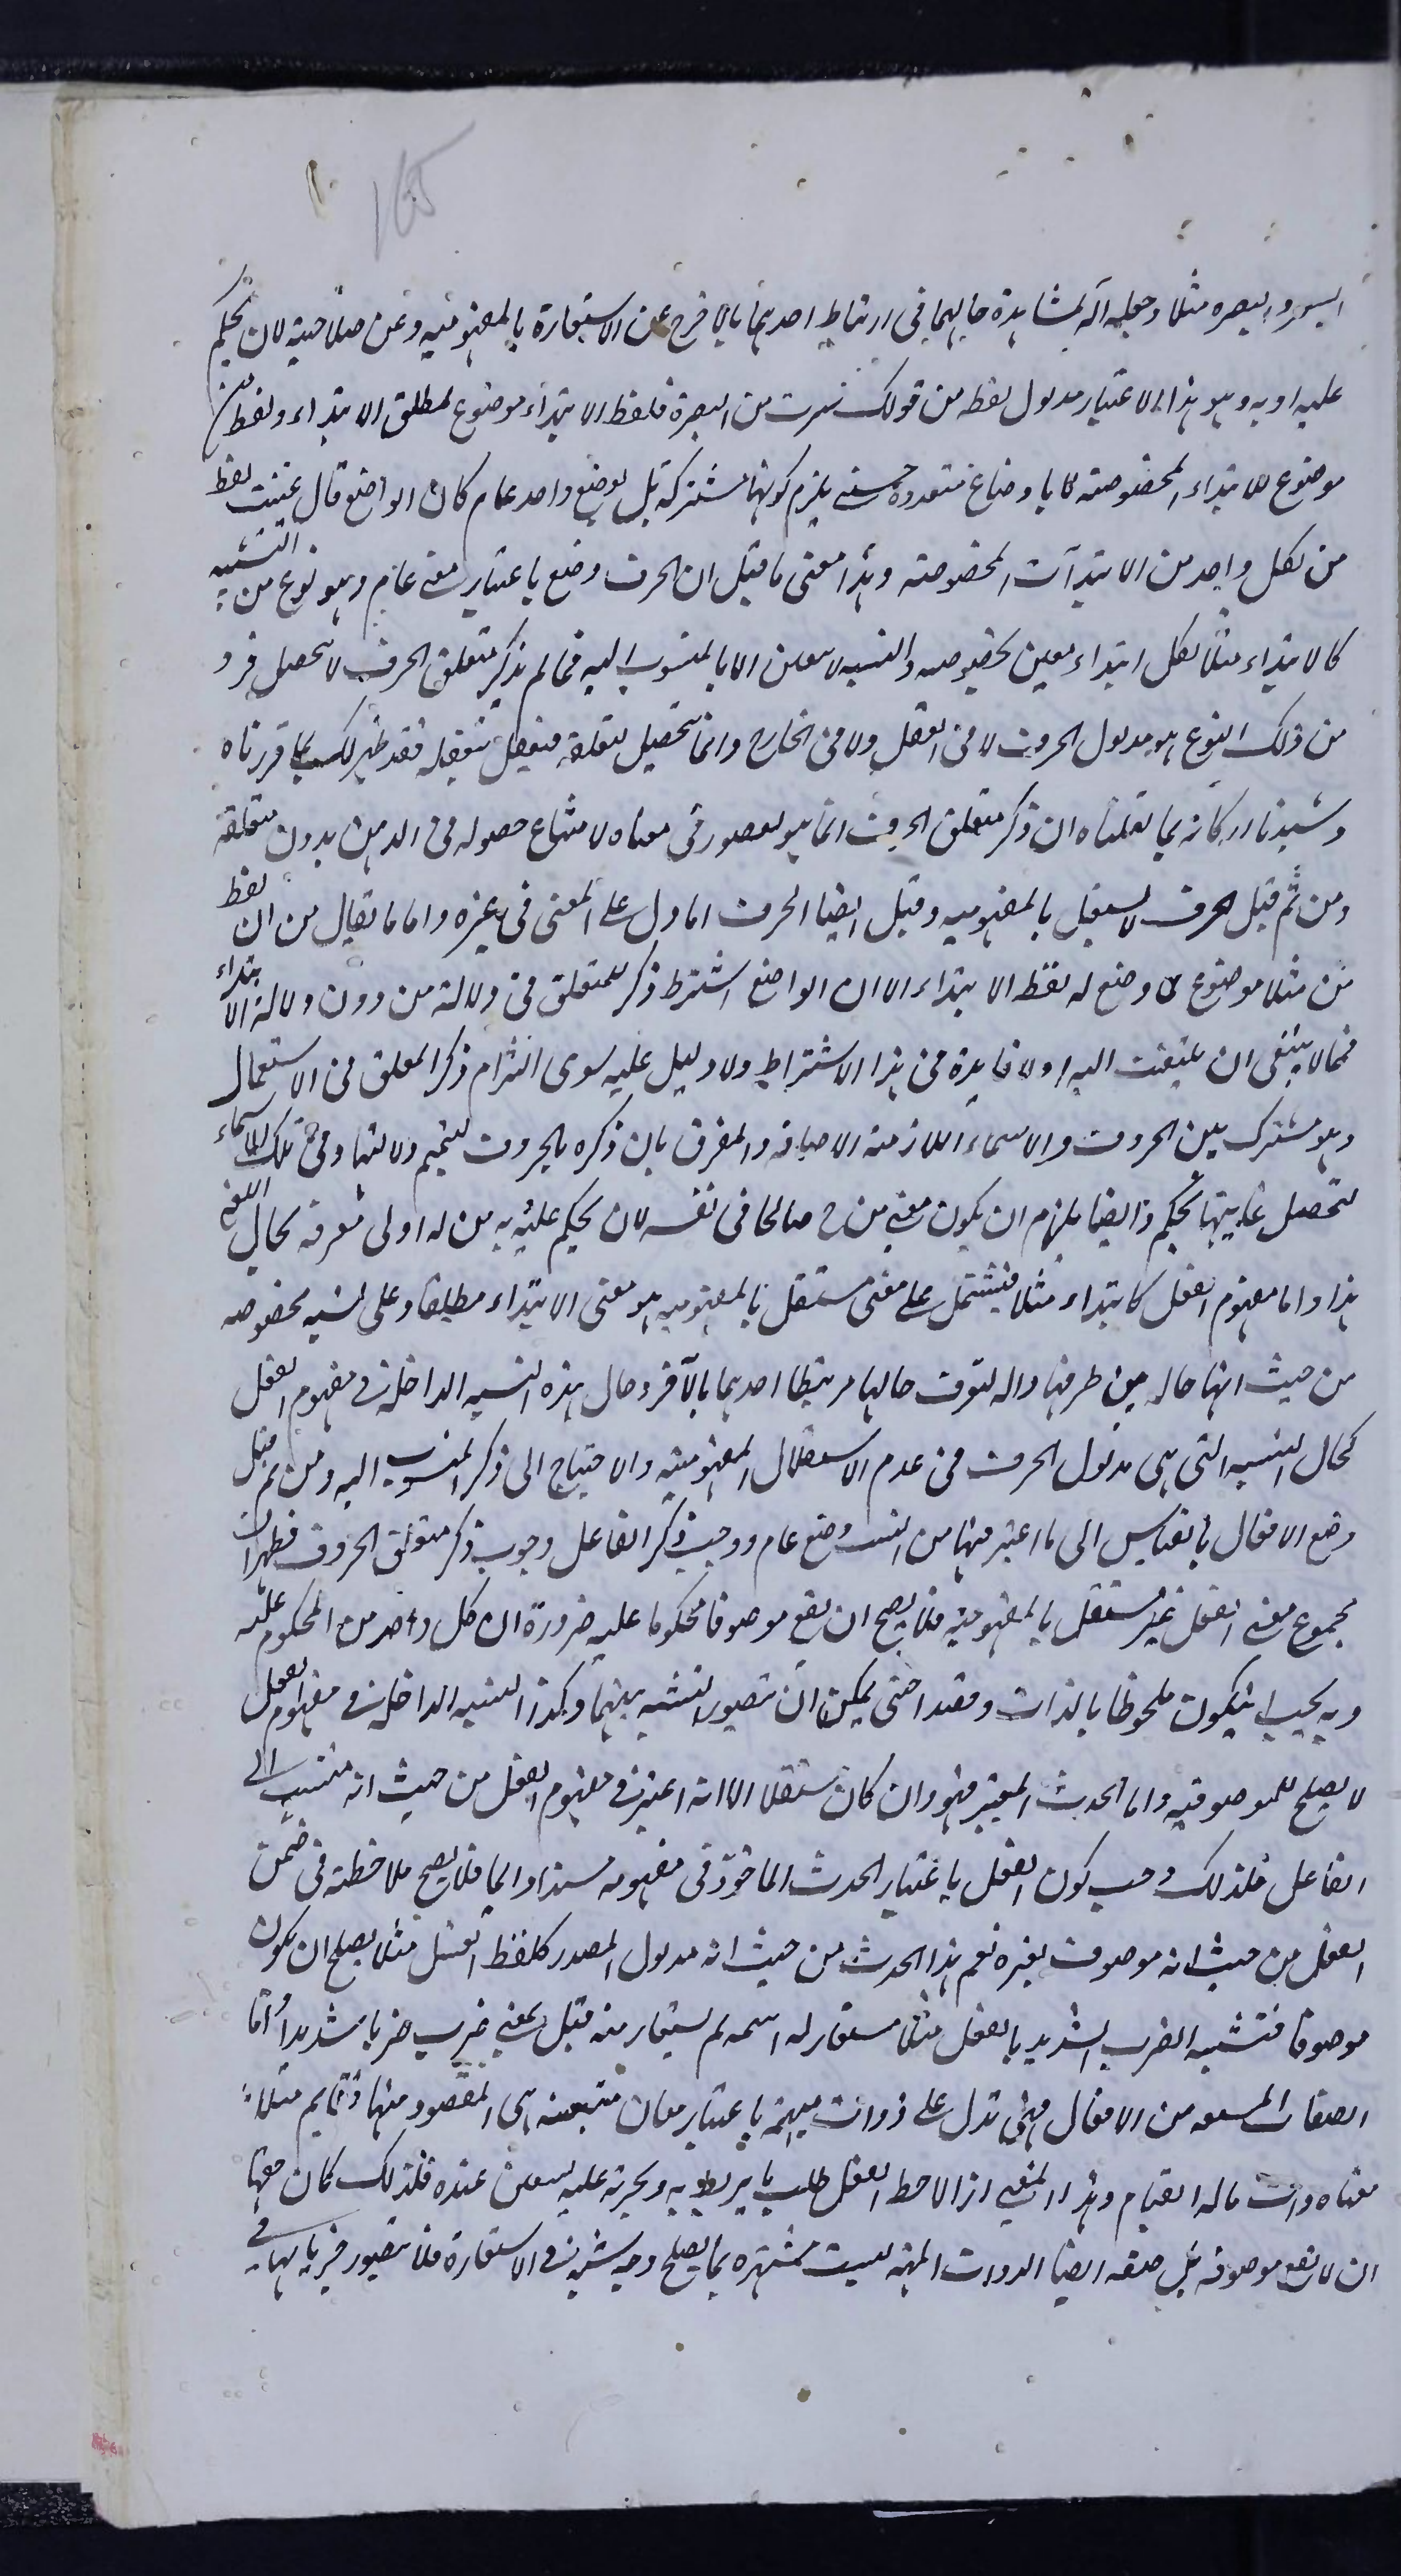 165
السير والبصره مثلا وجعله آلة لمشاهدة حاليهما فى ارتباط احدهما بالاخر خرج عن الاستعارة بالمفهومية وعن صلاحية لان يحكم
عليه او به وهو بهذا الاعتبار مدلول لفظه من قولك سرت من البصرة فلفظ الابتداء موضوع لمطلق الابتداء ولفظ من
موضوع للابتداء المخصوصة لا باوضاع متعددة حتى يلزم كونها مشتركة بل بوضع واحد عام كان الواضع قال عينت لفظ
من لكل واحد من الابتدآت المخصوصة وهذا معنى ما قيل ان الحرف وضع باعتبار معنى عام وهو نوع من النسبة
كالابتداء مثلا لكل ابتداء معين بخصوصه والنسبه لا تتعين الا بالمنسوب اليه فما لم يذكر متعلق الحرف لا يتحصل فرد
من ذلك النوع هو مدلول الحرف لا فى العقل ولا فى الخارج وانما يتحصل بتعلقه فيتعقل بتعقله فقد ظهر لك بما قررناه
وشيدنا اركانه بما نقلناه ان ذكر متعلق الحرف انما هو لقصور فى معناه لامتناع حصوله فى الذهن بدون متعلقه
ومن ثم قيل الحرف لا يستقل بالمفهوميه وقيل ايضا الحرف ما دل على المعنى فى غيره واما ما يقال من ان لفظ
من مثلا موضوع لما وضع له لفظ الابتداء الا ان الواضع اشترط ذكر المتعلق فى دلالته من دون دلالة الابتداء
فما لا ينبغى ان يلتفت اليه اولا فايدة فى هذا الاشتراط ولا دليل عليه سوى التزام ذكر المتعلق فى الاستعمال
وهو مشترك بين الحروف والاسماء اللازمة الاضافة والفرق بان ذكره بالحروف لتتميم دلالتها وفى تلك الاسماء
لتحصل غايتها تحكم وايضا يلزم ان يكون معنى من ح صالحا فى نفسه لان يحكم عليه وبه من له اولى معرفة بحال اللغة
هذا واما مفهوم الفعل كابتداء مثلا فيشتمل على معنى مستقل بالمفهوميه هو معنى الابتداء مطلقا وعلى نسبه مخصوصه
من حيث انها حاله بين طرفيها واله لتعرف حالها مرتبطا احدهما بالآخر وحال هذه النسبه الداخلة فى مفهوم الفعل
كحال النسبه التى هى مدلول الحرف فى عدم الاستقلال بالمفهومية والاحتياج الى ذكر المنسوب اليه ومن ثم قيل
وضع الافعال بالقياس الى ما اعتبر فيها من النسب وضع عام ووجب ذكر الفاعل وجوب ذكر متعلق الحرف فظهر ان
مجموع معنى الفعل غير مستقل بالمفهومية فلا يصح ان يقع موصوفا محكوما عليه ضرورة ان كل واحد من المحكوم عليه
وبه يجب ان يكون ملحوظا بالذات وقصدا حتى يمكن ان يتصور النسبه بينهما وكذا النسبه الداخلة فى مفهوم الفعل
لا يصلح للموصوفيه واما الحدث المعتبر فيه وان كان مستقلا الا انه اعتبر فى مفهوم الفعل من حيث انه منتسب الى
الفاعل فلذلك وجب كون الفعل باعتبار الحدث الماخوذ فى مفهومه مسندا دايما فلا يصح ملاحظته فى ضمن
الفعل من حيث انه موصوف بغيره نعم هذا الحدث من حيث انه مدلول المصدر كلفظ القتل مثلا يصلح ان يكون
موصوفا فتشبه الضرب الشديد بالقتل مثلا مستعار له اسمه ثم يستعار منه قتل بمعنى ضرب ضربا شديدا واما
الصفات المشتقه من الافعال فهى تدل على ذوات مبهمة باعتبار معان متعينه هى المقصود منها فقايم مثلا
معناه ذات ما له القيام وهذا المعنى اذا لاحظه العقل طلب ما يربط به ويجريه عليه ليتعين عنده فلذلك كان حقها
ان لا تقع موصوفه بل صفه ايضا الذوات المبهمه ليست مشتهره بما يصلح وجه شبه فى الاستعارة فلا يتصور جريانها فى